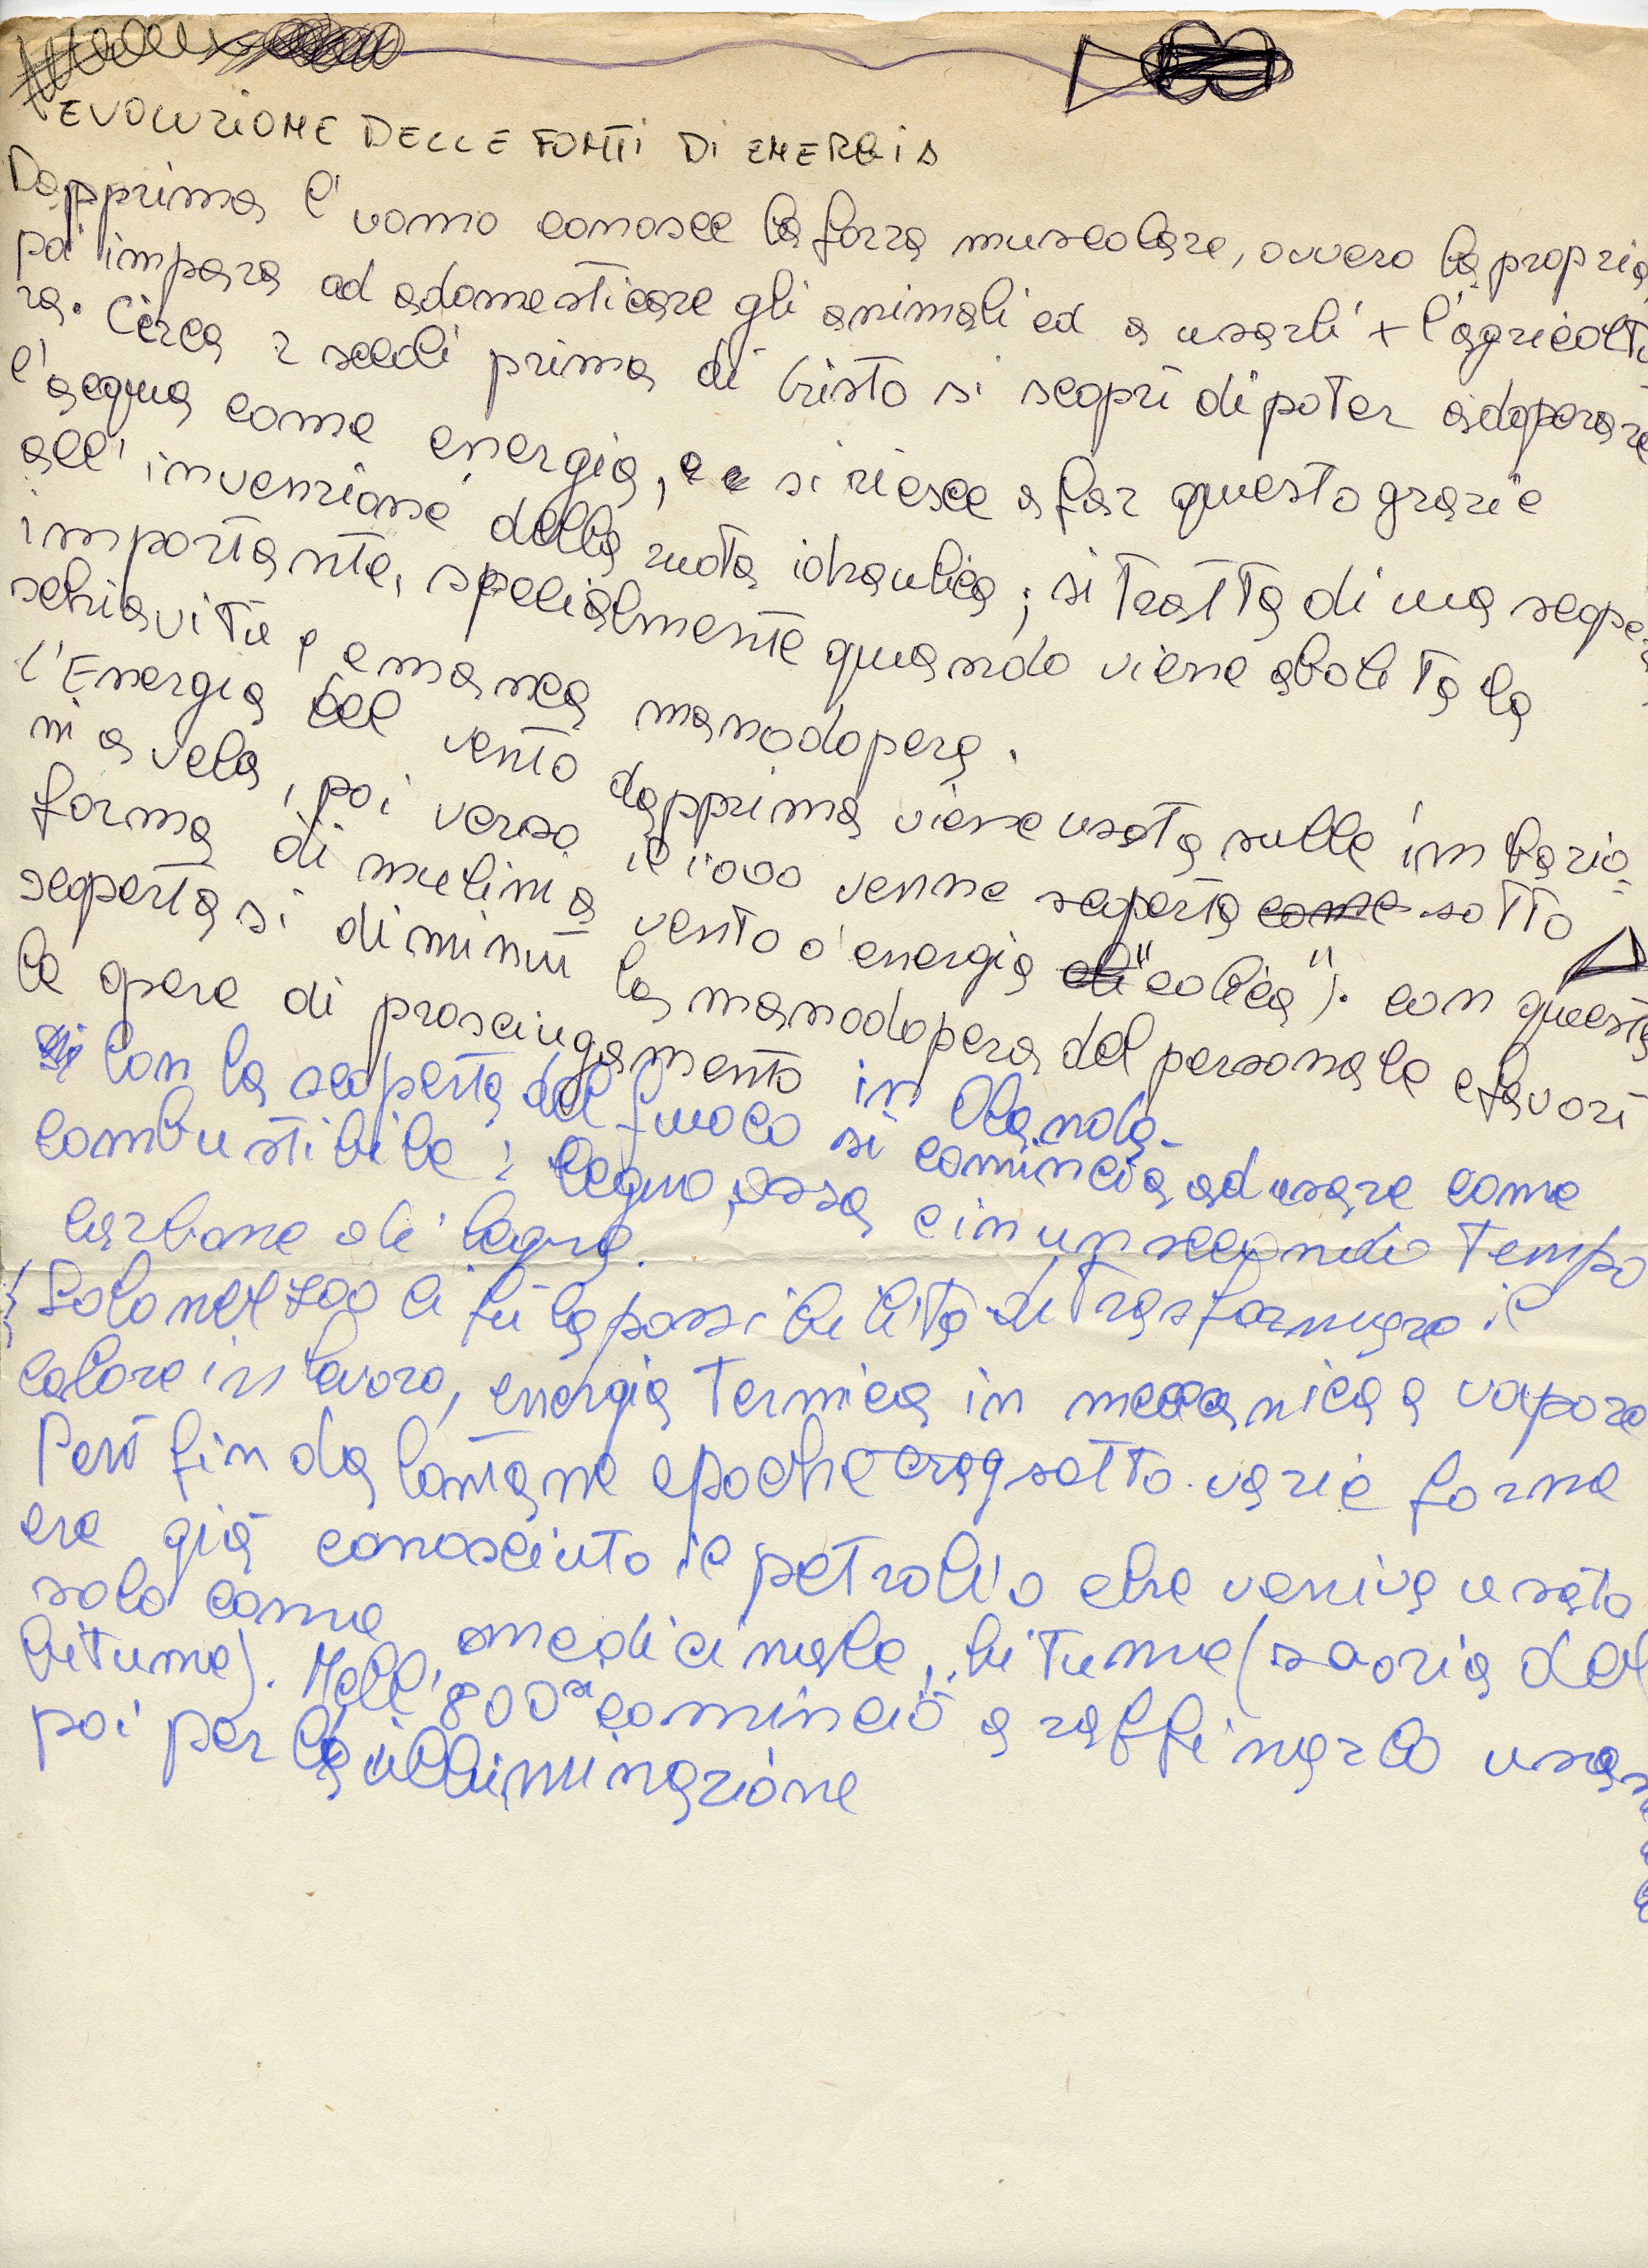 EVOLUZIONE DELLE FONTI DI ENERGIA
Dapprima l'uomo conosce la forza muscolare, ovvero la propria,
poi impara ad adomesticare gli animali ed a usarli x l'agricoltu
ra. Circa 2 secoli prima di Cristo si scoprì di poter adoperare
l'acqua come energia, e si riesce a far questo grazie
all'invenzione della ruota idraulica; si tratta di una scope
importante, specialmente quando viene abolita la
schiavitù e manca manodopera.
l'Energia del vento dapprima viene usata sulle imbario
ni a vela, poi verso il 1000 venne scoperta come sotto
forma di mulini a vento (l'energia "eolica"). con questa
scoperta si diminuì la manodopera del personale e favorì
le opere di prosciugamento in Olanda.
Con la scoperta del fuoco si comincia ad usare come
combustibile: legno, ossa e in un secondo tempo
carbone di legna.
Solo nel 700 ci fù la possibilità di trasformare il
calore in lavoro, energia termica in meccanica a vapore
Però fin da lontane epoche sotto varie forme
era già conosciuto il petrolio che veniva usato
solo come medicinale, bitume (storia del
bitume). Nell'800 si cominciò a raffinarlo usan
poi per la illuminazione